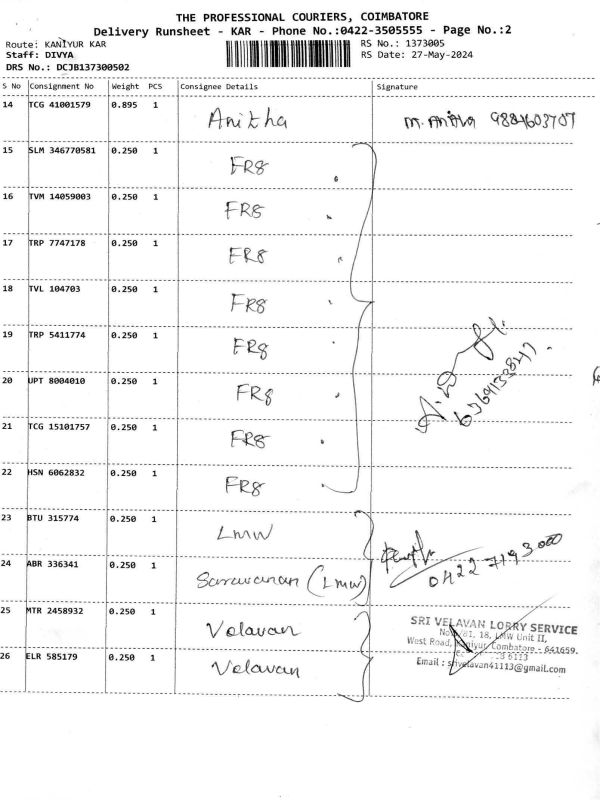 THE PROFESSIONAL COURIERS, COIMBATORE
Delivery Runsheet - KAR - Phone No.:0422-3505555 - Page No.:2
Route: KANIYUR KAR RS No.: 1373005
Staff: DIVYA RS Date: 27-May-2024
DRS No.: DCJB137300502
S No Consignment No Weight PCS Consignee Details Signature
14 TCG 41001579 0.895 1 Anitha M. Anitha
15 SLM 346770581 0.250 1 FR8
16 TVM 14059003 0.250 1 FR8
17 TRP 7747178 0.250 1 FR8
18 TVL 104703 0.250 1 FR8
19 TRP 5411774 0.250 1 FR8
20 UPT 8004010 0.250 1 FR8
21 TCG 15101757 0.250 1 FR8
22 HSN 6062832 0.250 1 FR8
23 BTU 315774 0.250 1 LMW
24 ABR 336341 0.250 1 Saravanan (LMW) 0422 7193000
25 MTR 2458932 0.250 1 Velavan
26 ELR 585179 0.250 1 Velavan
SRI VELAVAN LORRY SERVICE
18, LMW Unit II,
West Road, Coimbatore - 641659.
6113
Email : srivelavan41113@gmail.com